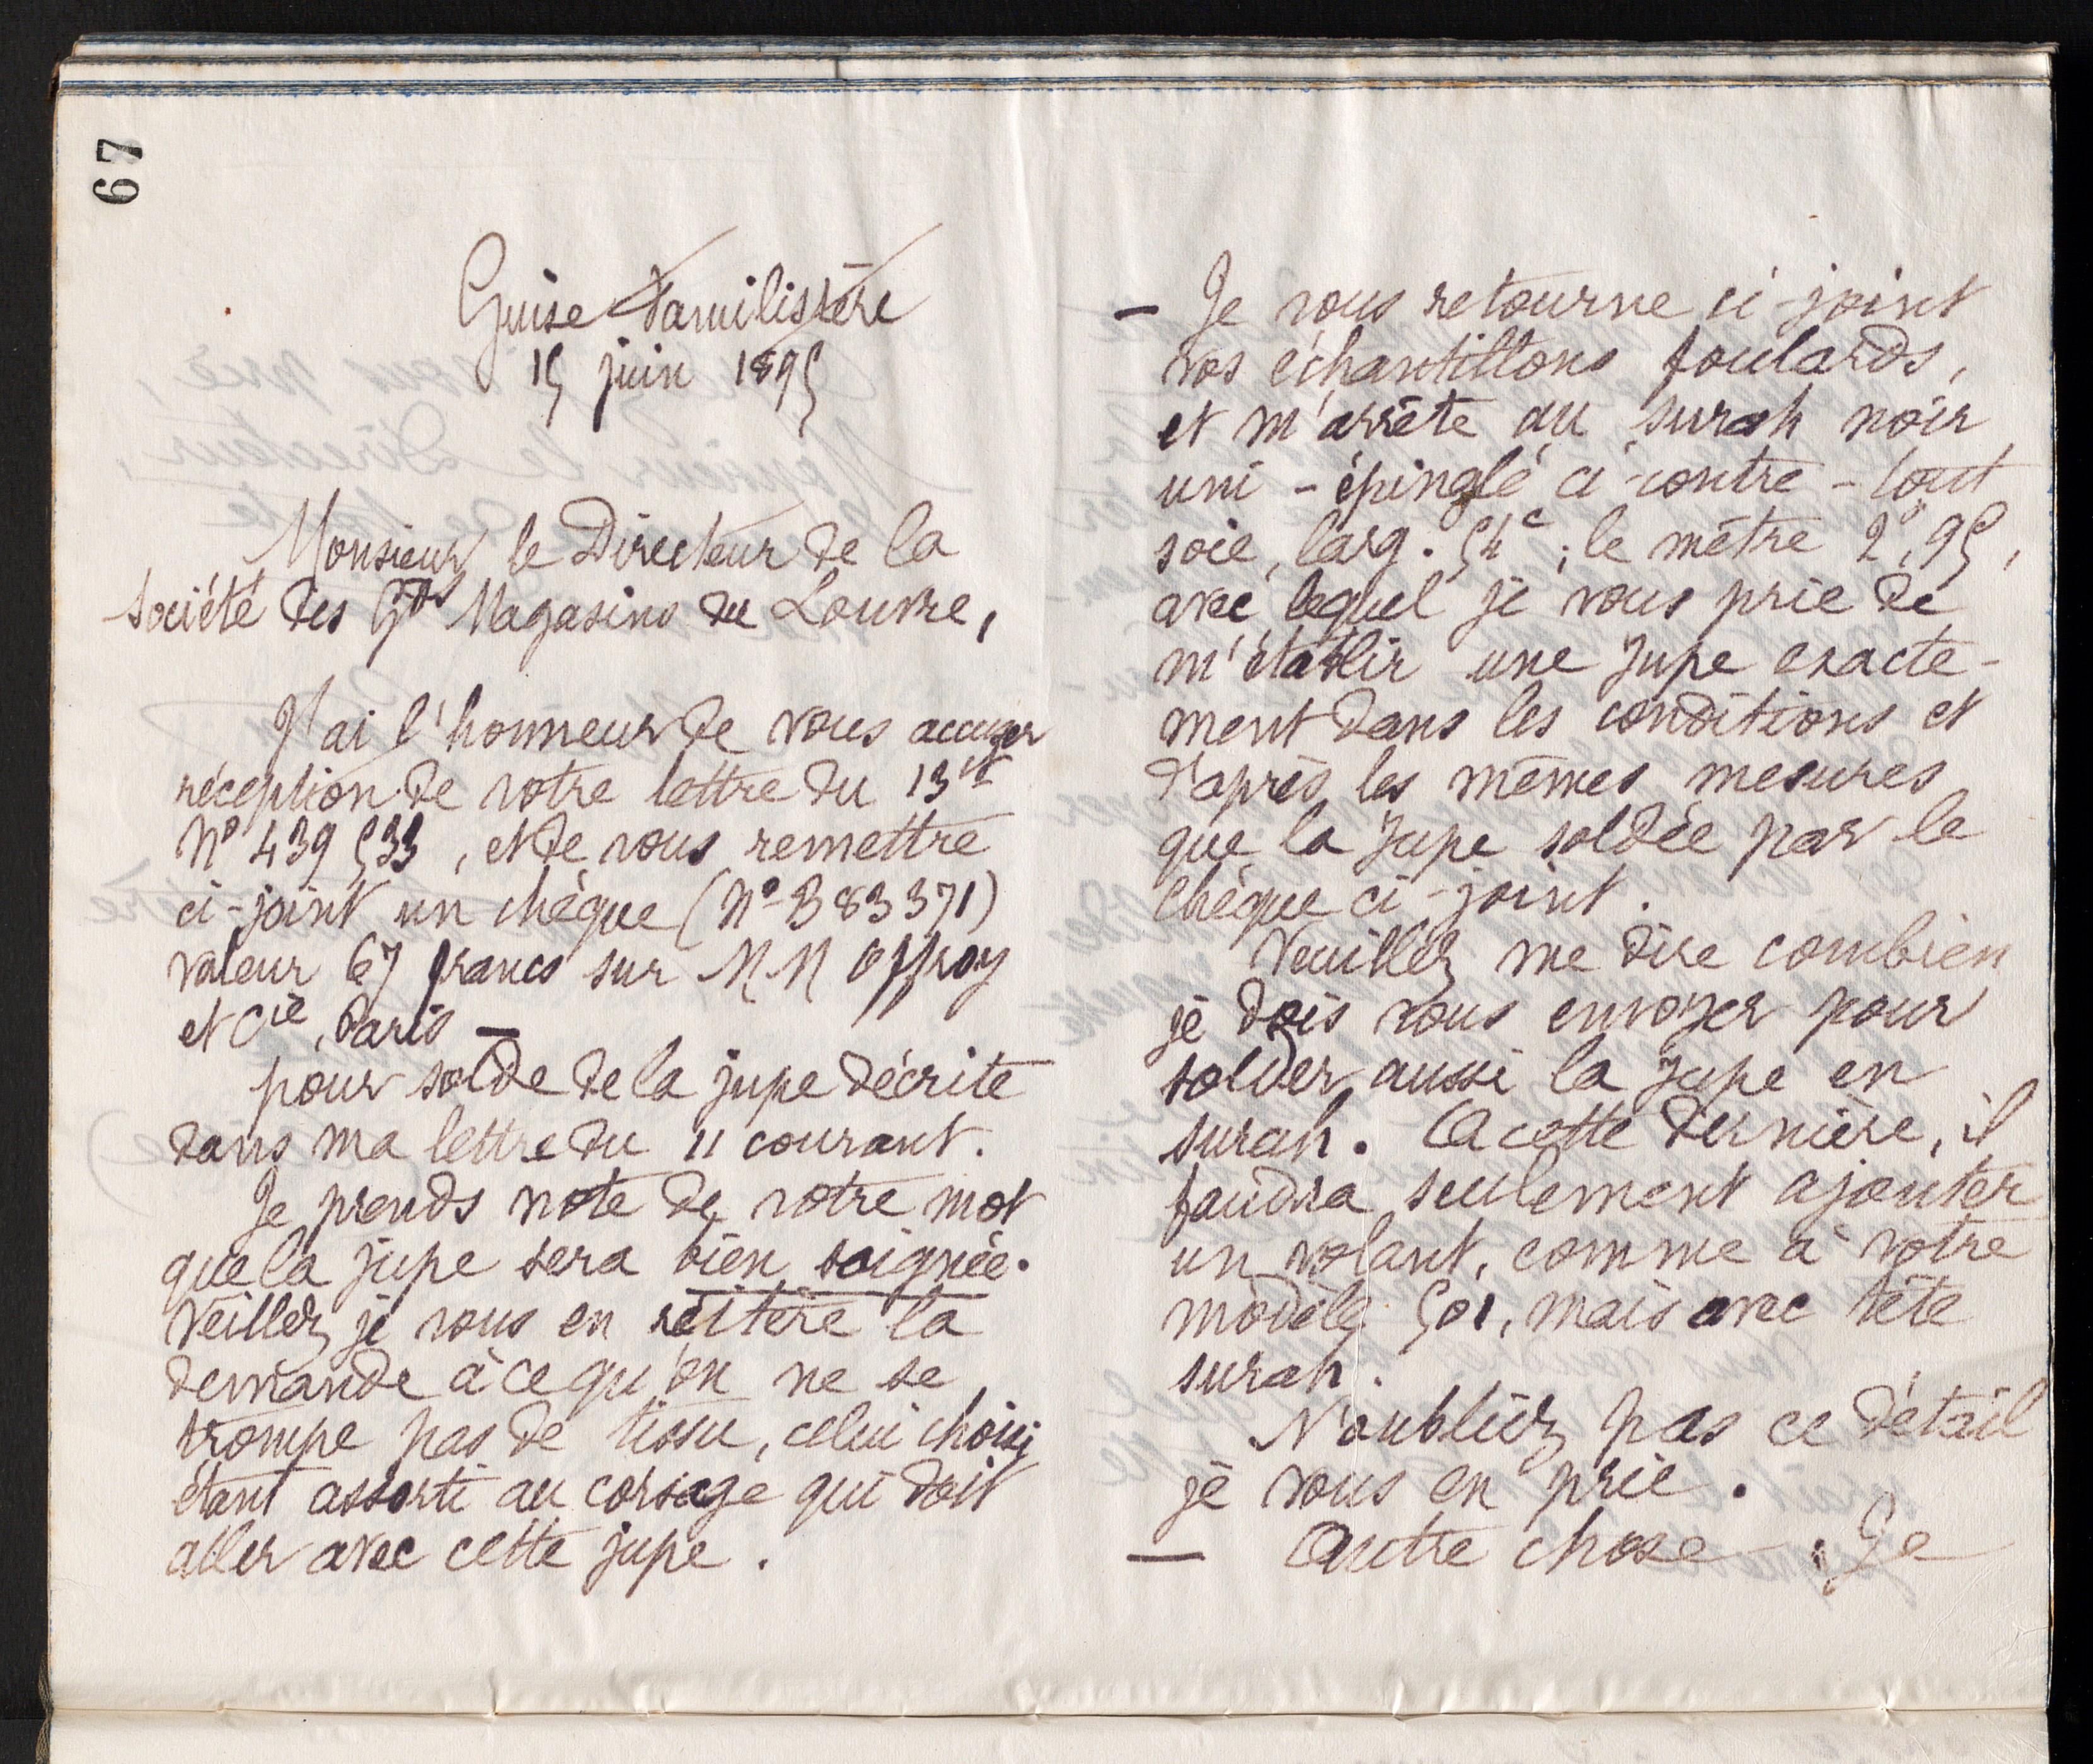 67
Guise Familistère
15 juin 1895
Monsieur le Directeur de la
Société des Gds Magasins du Louvre,
J'ai l'honneur de vous accuser
réception de votre lettre du 13 ct
N° 439 533, et de vous remettre
ci-joint un chèque (N° B 83 371)
valeur 67 francs sur MM Offroy
et Cie, Paris —
pour solde de la jupe décrite
dans ma lettre du 11 courant.
Je prends note de votre mot
que la jupe sera bien soignée.
Veillez, je vous en réitère la
demande à ce qu'on ne se
trompe pas de tissu, celui choisi
étant assorti au corsage qui doit
aller avec cette jupe.
— Je vous retourne ci-joint
vos échantillons foulards,
et m'arrête au surah noir
uni - épinglé ci-contre - tout
soie, larg. 54c; le mètre 2f,95,
avec lequel je vous prie de
m'établir une jupe exacte-
ment dans les conditions et
d'après les mêmes mesures
que la jupe soldée par le
chèque ci-joint.
Veuillez me dire combien
je dois vous envoyer pour
solder aussi la jupe en
surah. A cette dernière, il
faudra seulement ajouter
un volant, comme à votre
modèle 501, mais avec tête
surah.
N'oubliez pas ce détail
je vous en prie.
— Autre chose. Je